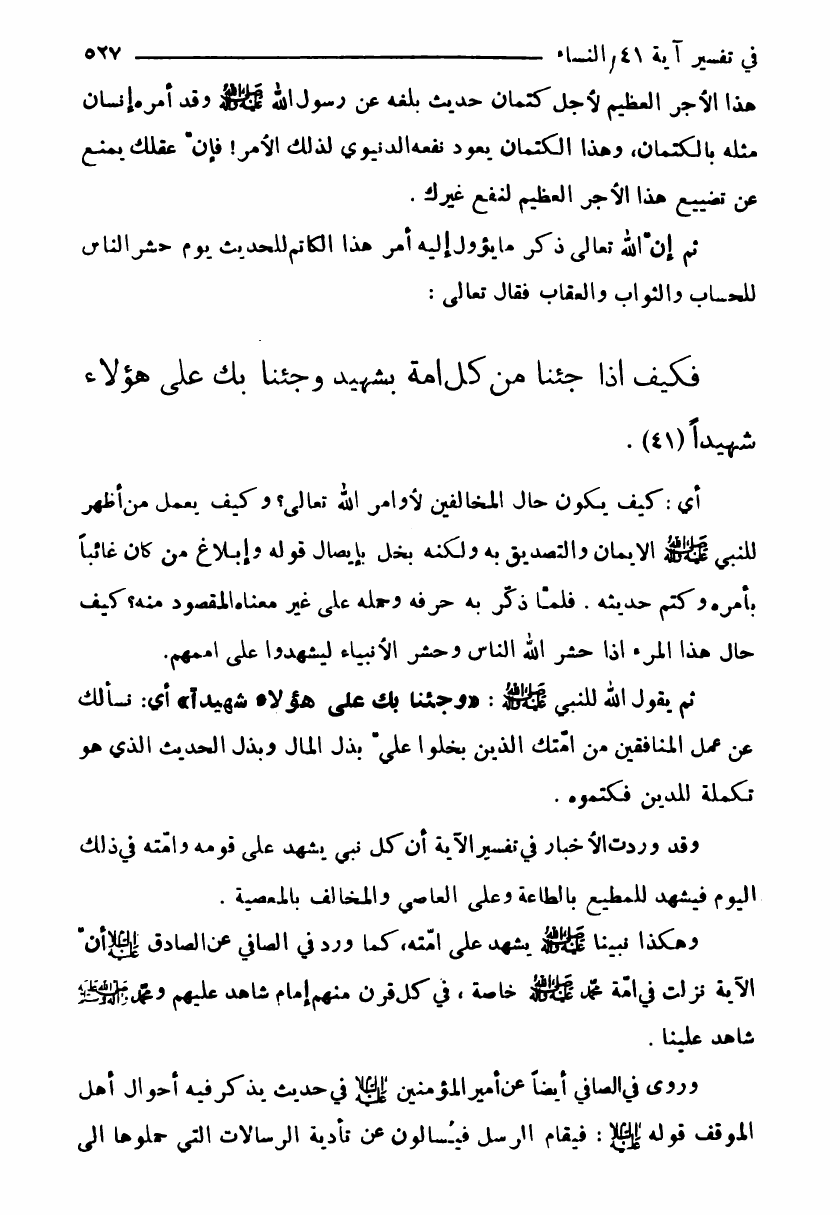 في تفسير آية ٤١/النساء ٥٢٧
هذا الأجر العظيم لأجل كتمان حديث بلغه عن رسول الله ﷺ وقد أمره إنسان
مثله بالكتمان، وهذا الكتمان يعود نفعه الدنيوي لذلك الأمر! فإنّ عقلك يمنع
عن تضييع هذا الأجر العظيم لنفع غيرك .
ثم إنّ الله تعالى ذكر ما يؤول إليه أمر هذا الكاتم للحديث يوم حشر الناس
للحساب والثواب والعقاب فقال تعالى :
فكيف اذا جئنا من كل امة بشهيد وجئنا بك على هؤلاء
شهيداً (٤١) .
أي : كيف يكون حال المخالفين لأوامر الله تعالى؟ وكيف يعمل من أظهر
للنبي ﷺ الايمان والتصديق به ولكنه بخل بإيصال قوله وإبلاغ من كان غائباً
بأمره وكتم حديثه . فلمّا ذكّر به حرفه وحمله على غير معناه المقصود منه؟ كيف
حال هذا المرء اذا حشر الله الناس وحشر الأنبياء ليشهدوا على اممهم.
ثم يقول الله للنبي ﷺ : «وجئنا بك على هؤلاء شهيداً» أي: نسألك
عن عمل المنافقين من امّتك الذين بخلوا عليّ بذل المال وبذل الحديث الذي هو
تكملة للدين فكتموه .
وقد وردت الأخبار في تفسير الآية أن كل نبي يشهد على قومه وامّته في ذلك
اليوم فيشهد للمطيع بالطاعة وعلى العاصي والمخالف بالمعصية .
وهكذا نبينا ﷺ يشهد على امّته، كما ورد في الصافي عن الصادق عليه السلام أنّ
الآية نزلت في امّة محمّد ﷺ خاصة ، في كل قرن منهم إمام شاهد عليهم ومحمّد ﷺ
شاهد علينا .
وروى في الصافي أيضاً عن أمير المؤمنين عليه السلام في حديث يذكر فيه أحوال أهل
الموقف قوله عليه السلام : فيقام الرسل فيُسألون عن تأدية الرسالات التي حملوها الى